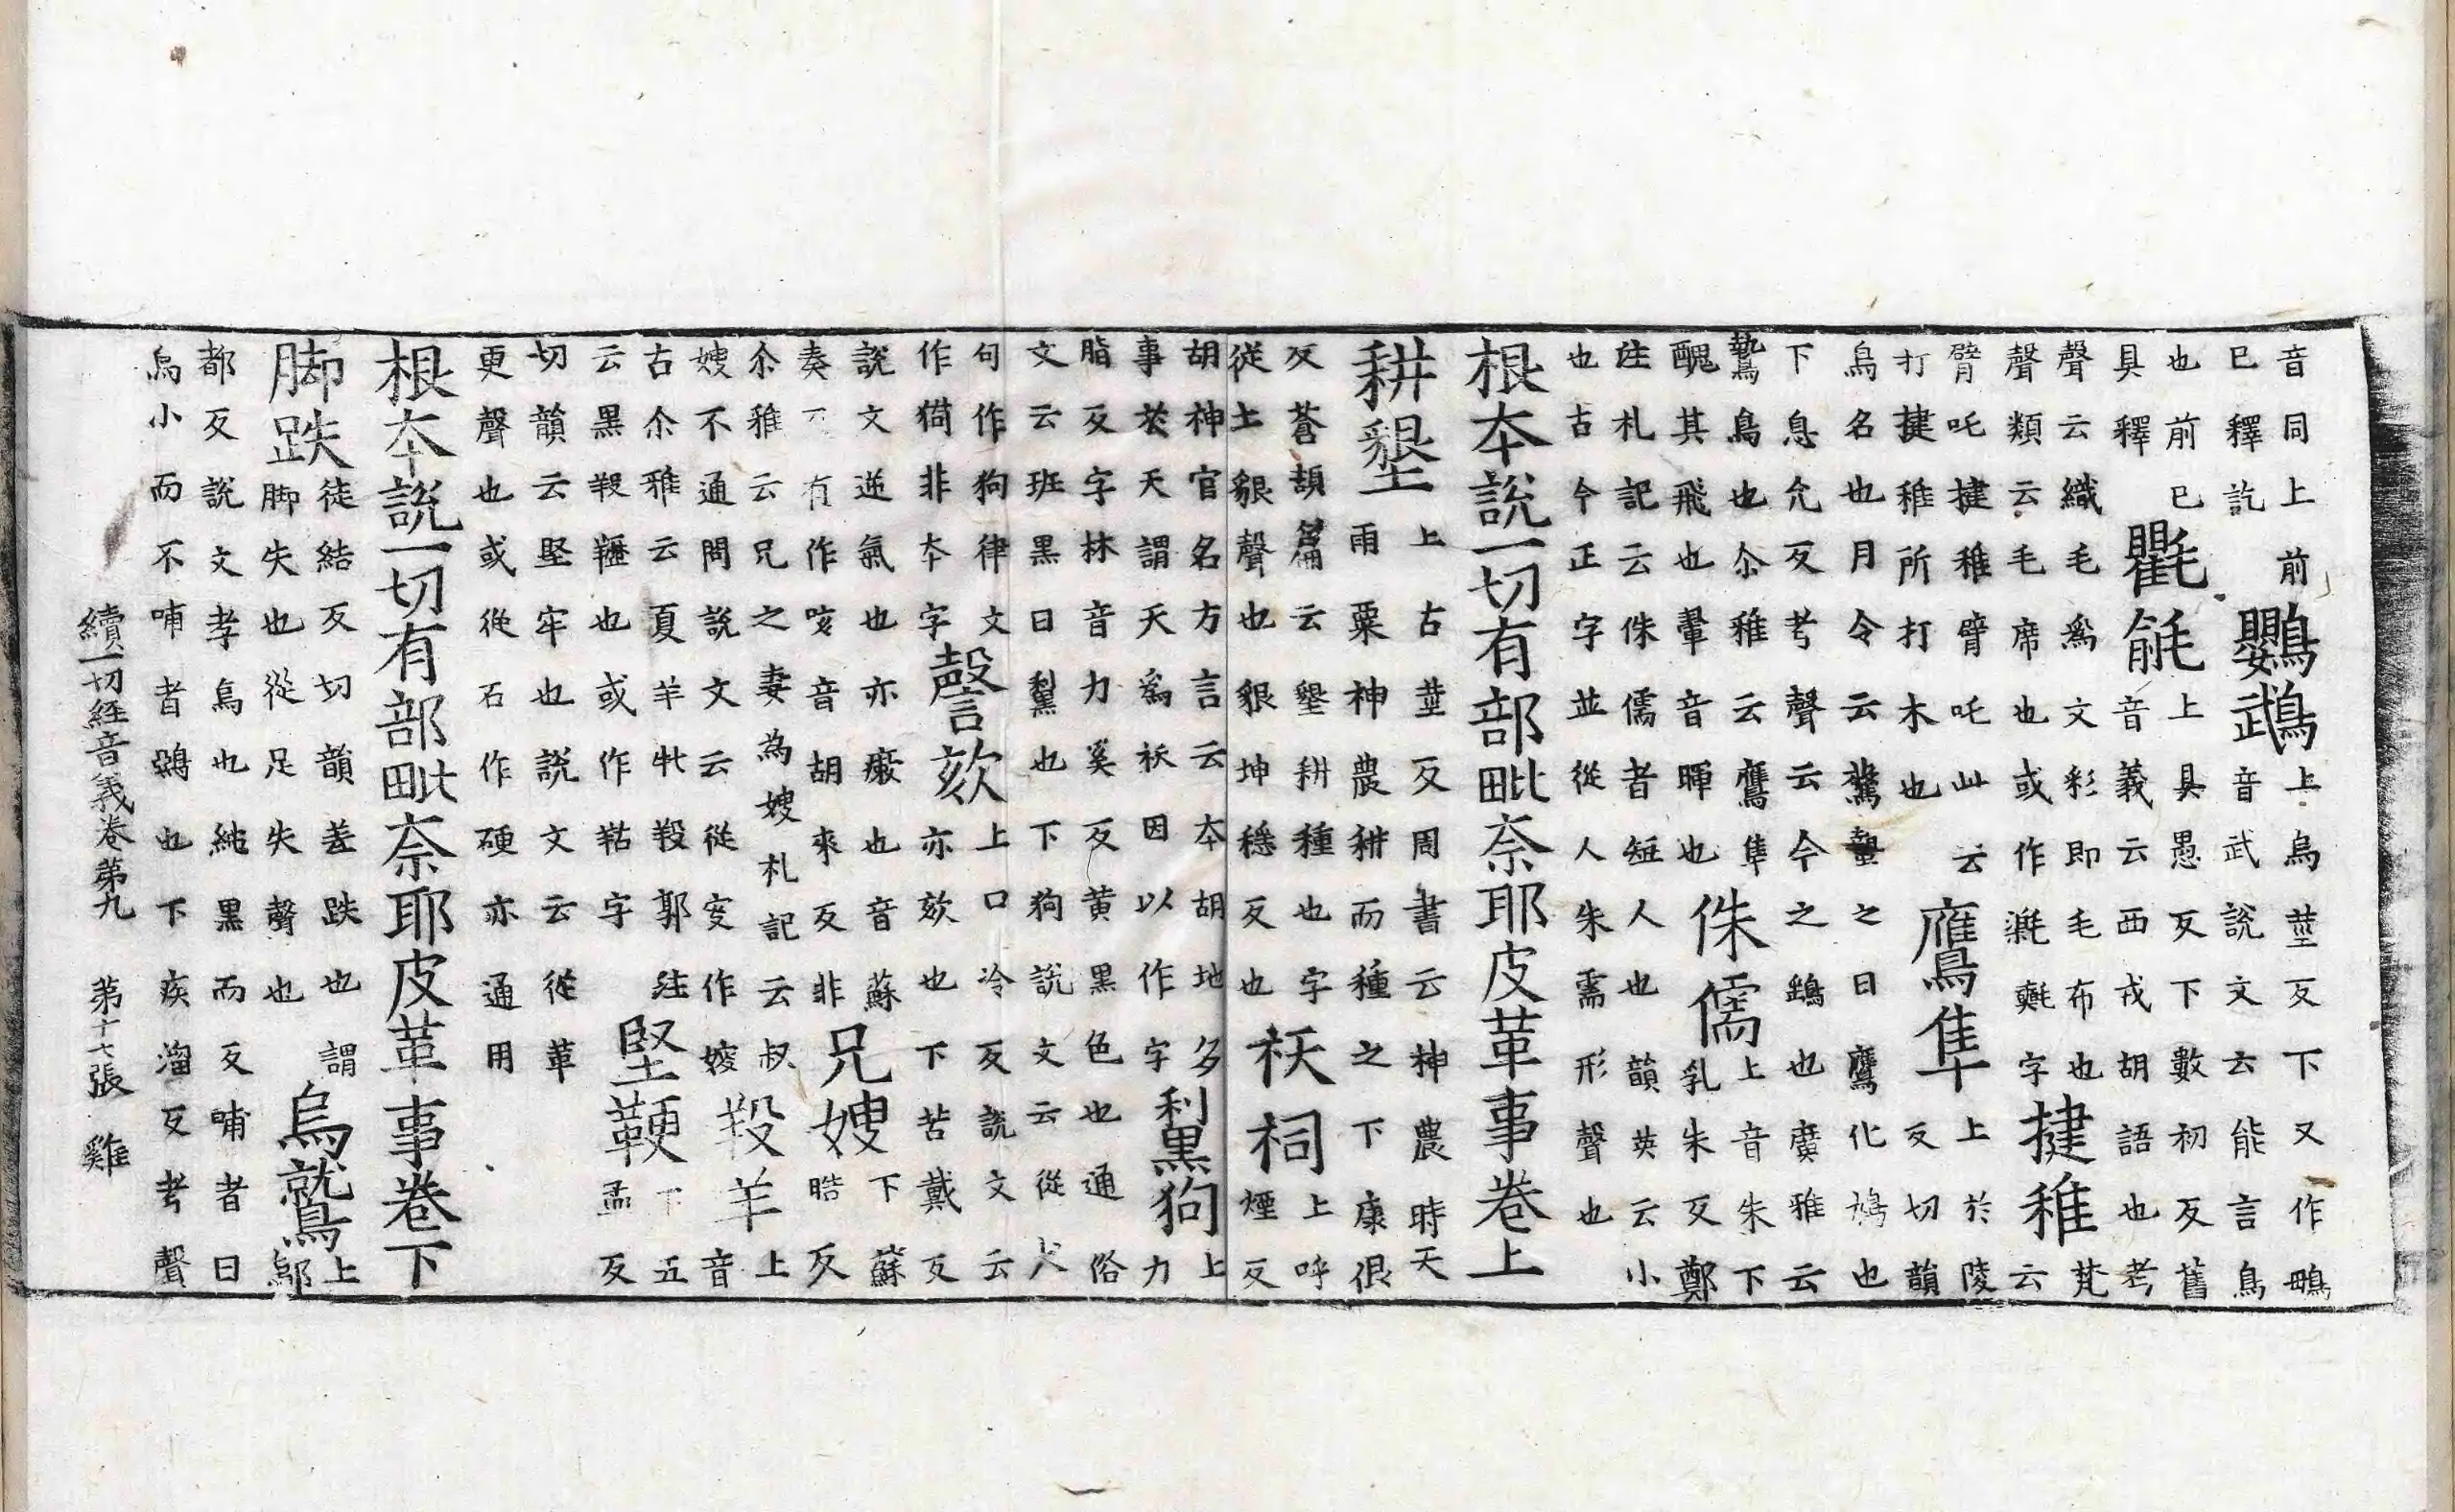 音同上前已釋訖鸚鵡上烏莖反下又作䳇音武說文云能言鳥
也前已具釋氍毹上具愚反下數初反舊音義云西戎胡語也考
聲云織毛爲文彩即毛布也聲類云毛席也或作㲣㲪字揵稚梵云
臂吒揵稚臂吒此云打揵稚所打木也鷹隼上於陵反切韻
鳥名也月令云驚蟄之日鷹化鳩也下息允反考聲云今之鷂也廣雅云
鷙鳥也尒雅云鷹隼醜其飛也翬音暉也侏儒上音朱下乳朱反鄭
注札記云侏儒者短人也韻英云小也古今正字並從人朱需形聲也
根本說一切有部毗奈耶皮革事卷上
耕墾上古莖反周書云神農時天雨粟神農耕而種之下康佷
反蒼頡篇云墾耕種也字從土貇聲也貇坤穩反也祆祠上呼煙反
胡神官名方言云本胡地多事於天謂天爲祆因以作字䵩狗上力
脂反字林音力奚反黃黑色也通俗文云班黑曰䵩也下狗說文云從犬
句作狗律文作猗非本字謦欬上口冷反說文云亦欬也下苦戴反
說文逆氣也亦瘷也音蘇奏反有作咳音胡來反非兄嫂下蘇晧反
尒雅云兄之妻為嫂札記云叔嫂不通問說文云從叜作㛮羖羊上音
古尒雅云夏羊牝羖郭注云黑羖䍽也或作䍩字堅鞕下五孟反
切韻云堅牢也說文云從革更聲也或從石作硬亦通用
根本說一切有部毗奈耶皮革事卷下
脚跌徒結反切韻差跌也謂脚失也從足失聲也烏鷲上鄔
都反說文孝烏也純黑而反哺者曰烏小而不哺者鵶也下疾溜反考聲
續一切經音義卷第九 第十七張 雞